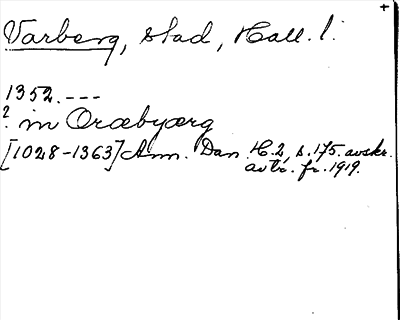 +
Varberg, stad, Hall. l.
1352. ---
? in Oræbyærg
[1028-1363] Ann. Dan. H.2, s.175. avskr.
avtr. fr. 1919.